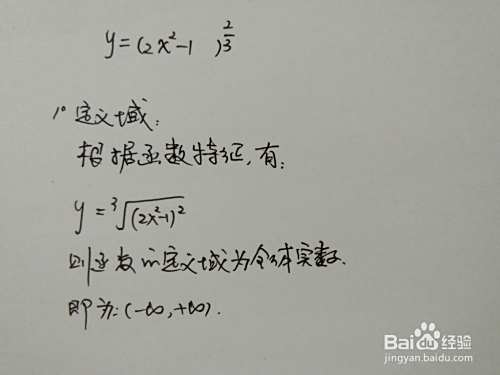 y=(2x²-1 )^(2/3)
1° 定义域:
根据函数特征,有:
y=³√(2x²-1)²
则函数的定义域为全体实数.
即为:(-∞,+∞).
Baidu经验
jingyan.baidu.com